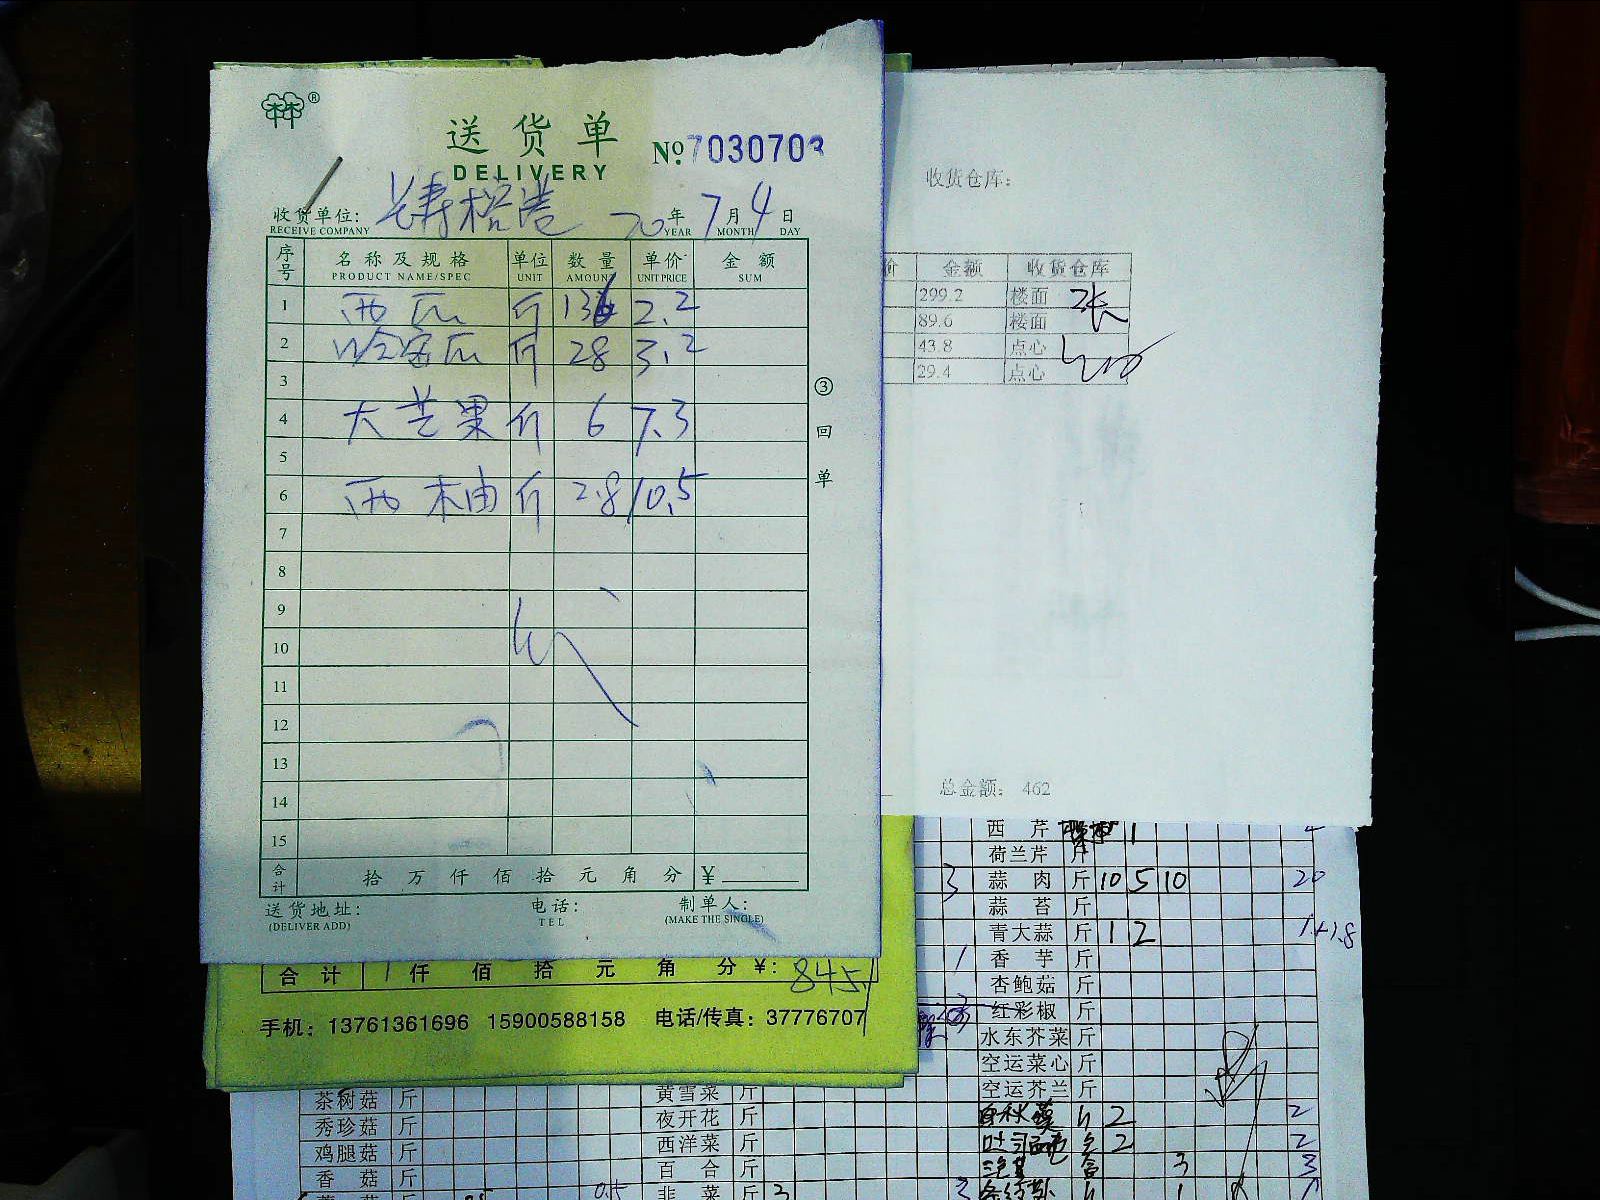 送货单
DELIVERY
No. 7030703
收货单位:
RECEIVE COMPANY
20 年 7 月 4 日
YEAR MONTH DAY
序号 名称及规格 单位 数量 单价 金额
PRODUCT NAME/SPEC UNIT AMOUNT UNIT PRICE SUM
1 西瓜 斤 136 2.2
2 哈密瓜 斤 28 3.2
3
4 大芒果 斤 6 7.3
5
6 西柚 斤 2.8 10.5
7
8
9
10
11
12
13
14
15
合计 拾 万 仟 佰 拾 元 角 分 ¥
送货地址: 电话: 制单人:
(DELIVER ADD) TEL (MAKE THE SINGLE)
③回单
合计 仟 佰 拾 元 角 分 ¥: 845.1
手机: 13761361696 15900588158 电话/传真: 37776707
收货仓库:
价 金额 收货仓库
299.2 楼面
89.6 楼面
43.8 点心
29.4 点心
总金额: 462
西芹 1
荷兰芹 斤
3 蒜肉 斤 10 5 10 20
蒜苔 斤
青大蒜 斤 1 2 1+1.8
1 香芋 斤
杏鲍菇 斤
红彩椒 斤
水东芥菜 斤
空运菜心 斤
空运芥兰 斤
2 2
2 2
3 3
茶树菇 斤 黄雪菜 斤
秀珍菇 斤 夜开花 斤
鸡腿菇 斤 西洋菜 斤
香菇 斤 百合 斤
0.5 韭菜 斤 3 3